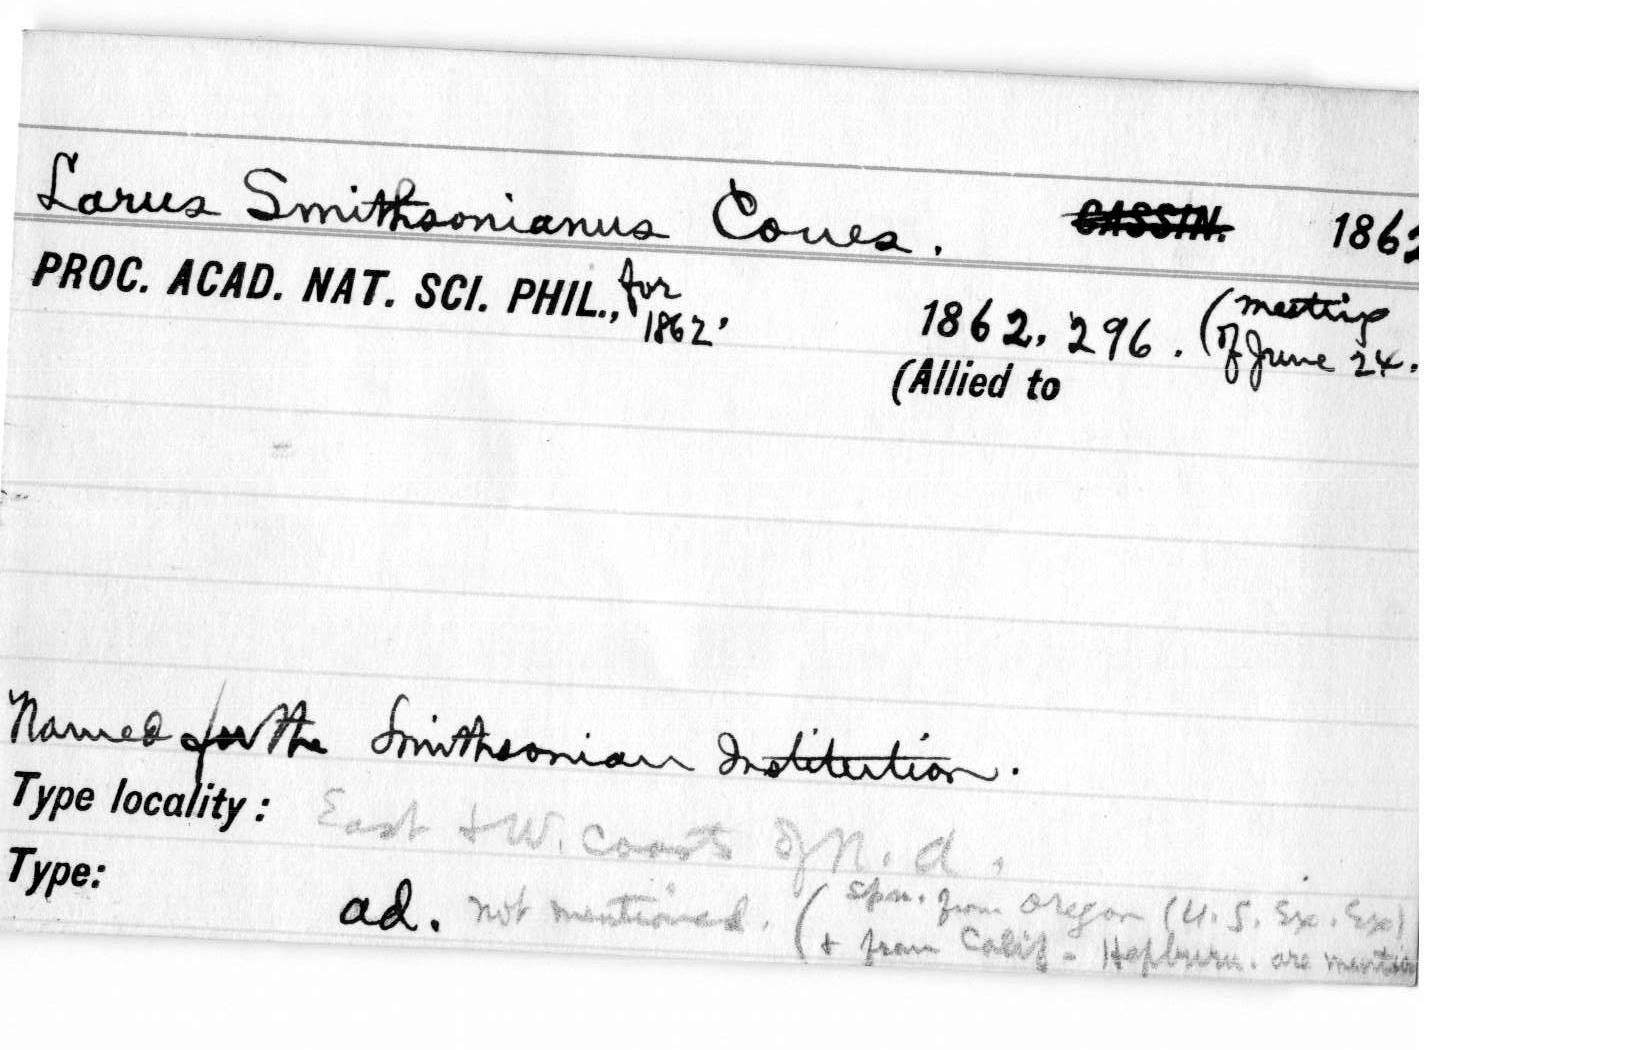 Larus Smithsonianus Coues. CASSIN. 1862
PROC. ACAD. NAT. SCI. PHIL., for 1862, 1862, 296. (meeting of June 24.
(Allied to
Named for the Smithsonian Institution.
Type locality: East & W. Coasts of N. A.
Type: ad. not mentioned. (Spn. from Oregon (U. S. Ex. Ex)
& from Calif - Hepburn. are mention